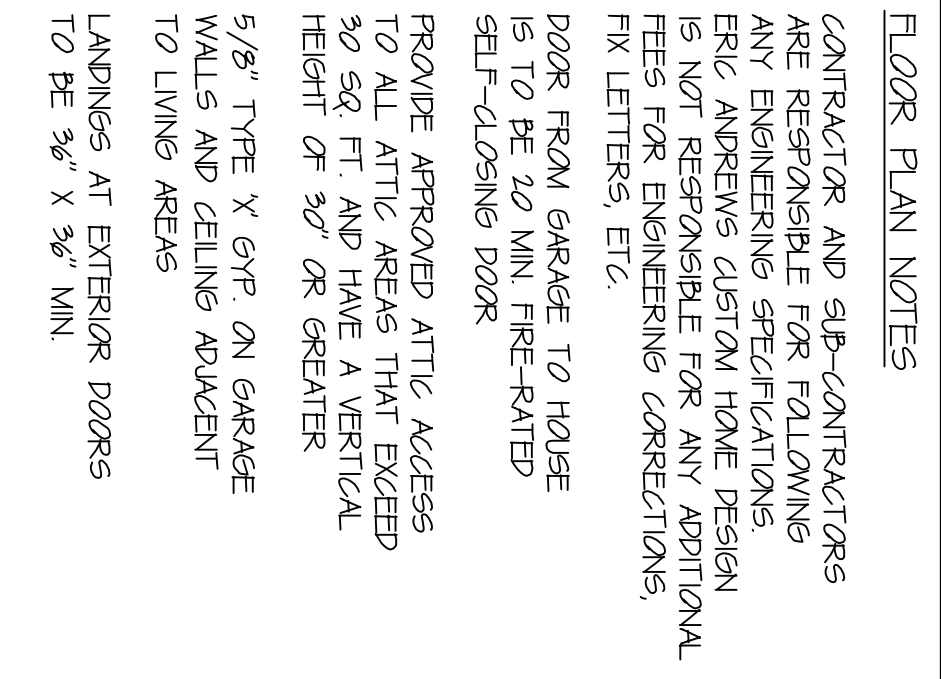 FLOOR PLAN NOTES
CONTRACTOR AND SUB-CONTRACTORS
ARE RESPONSIBLE FOR FOLLOWING
ANY ENGINEERING SPECIFICATIONS.
ERIC ANDREWS CUSTOM HOME DESIGN
IS NOT RESPONSIBLE FOR ANY ADDITIONAL
FEES FOR ENGINEERING CORRECTIONS,
FIX LETTERS, ETC.
DOOR FROM GARAGE TO HOUSE
IS TO BE 20 MIN. FIRE-RATED
SELF-CLOSING DOOR
PROVIDE APPROVED ATTIC ACCESS
TO ALL ATTIC AREAS THAT EXCEED
30 SQ. FT. AND HAVE A VERTICAL
HEIGHT OF 30" OR GREATER
5/8" TYPE 'X' GYP. ON GARAGE
WALLS AND CEILING ADJACENT
TO LIVING AREAS
LANDINGS AT EXTERIOR DOORS
TO BE 36" X 36" MIN.